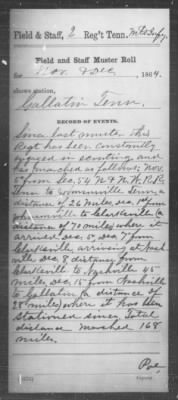 Field & Staff, 2 Reg't Tenn. Mtd Infy.
Field and Staff Muster Roll
Nov. & Dec 1864.
shows station,
Gallatin Tenn.
Since last muster this
Regt has been constantly
engaged in scouting and
has marched as follows: Nov.
from Sec. 54 N & N W R R
Tenn to Johnsonville Tenn a
distance of 26 miles,
Johnsonville to Clarksville (a
distance of 70 miles) where it
arrived Dec. 5, Dec 7 from
Clarksville arriving at Nash
ville Dec 8 distance from
Clarksville to Nashville 45
miles, Dec. 15 from Nashville
to Gallatin (a distance of
28 miles) where it has been
stationed since. Total
distance marched 168
miles.